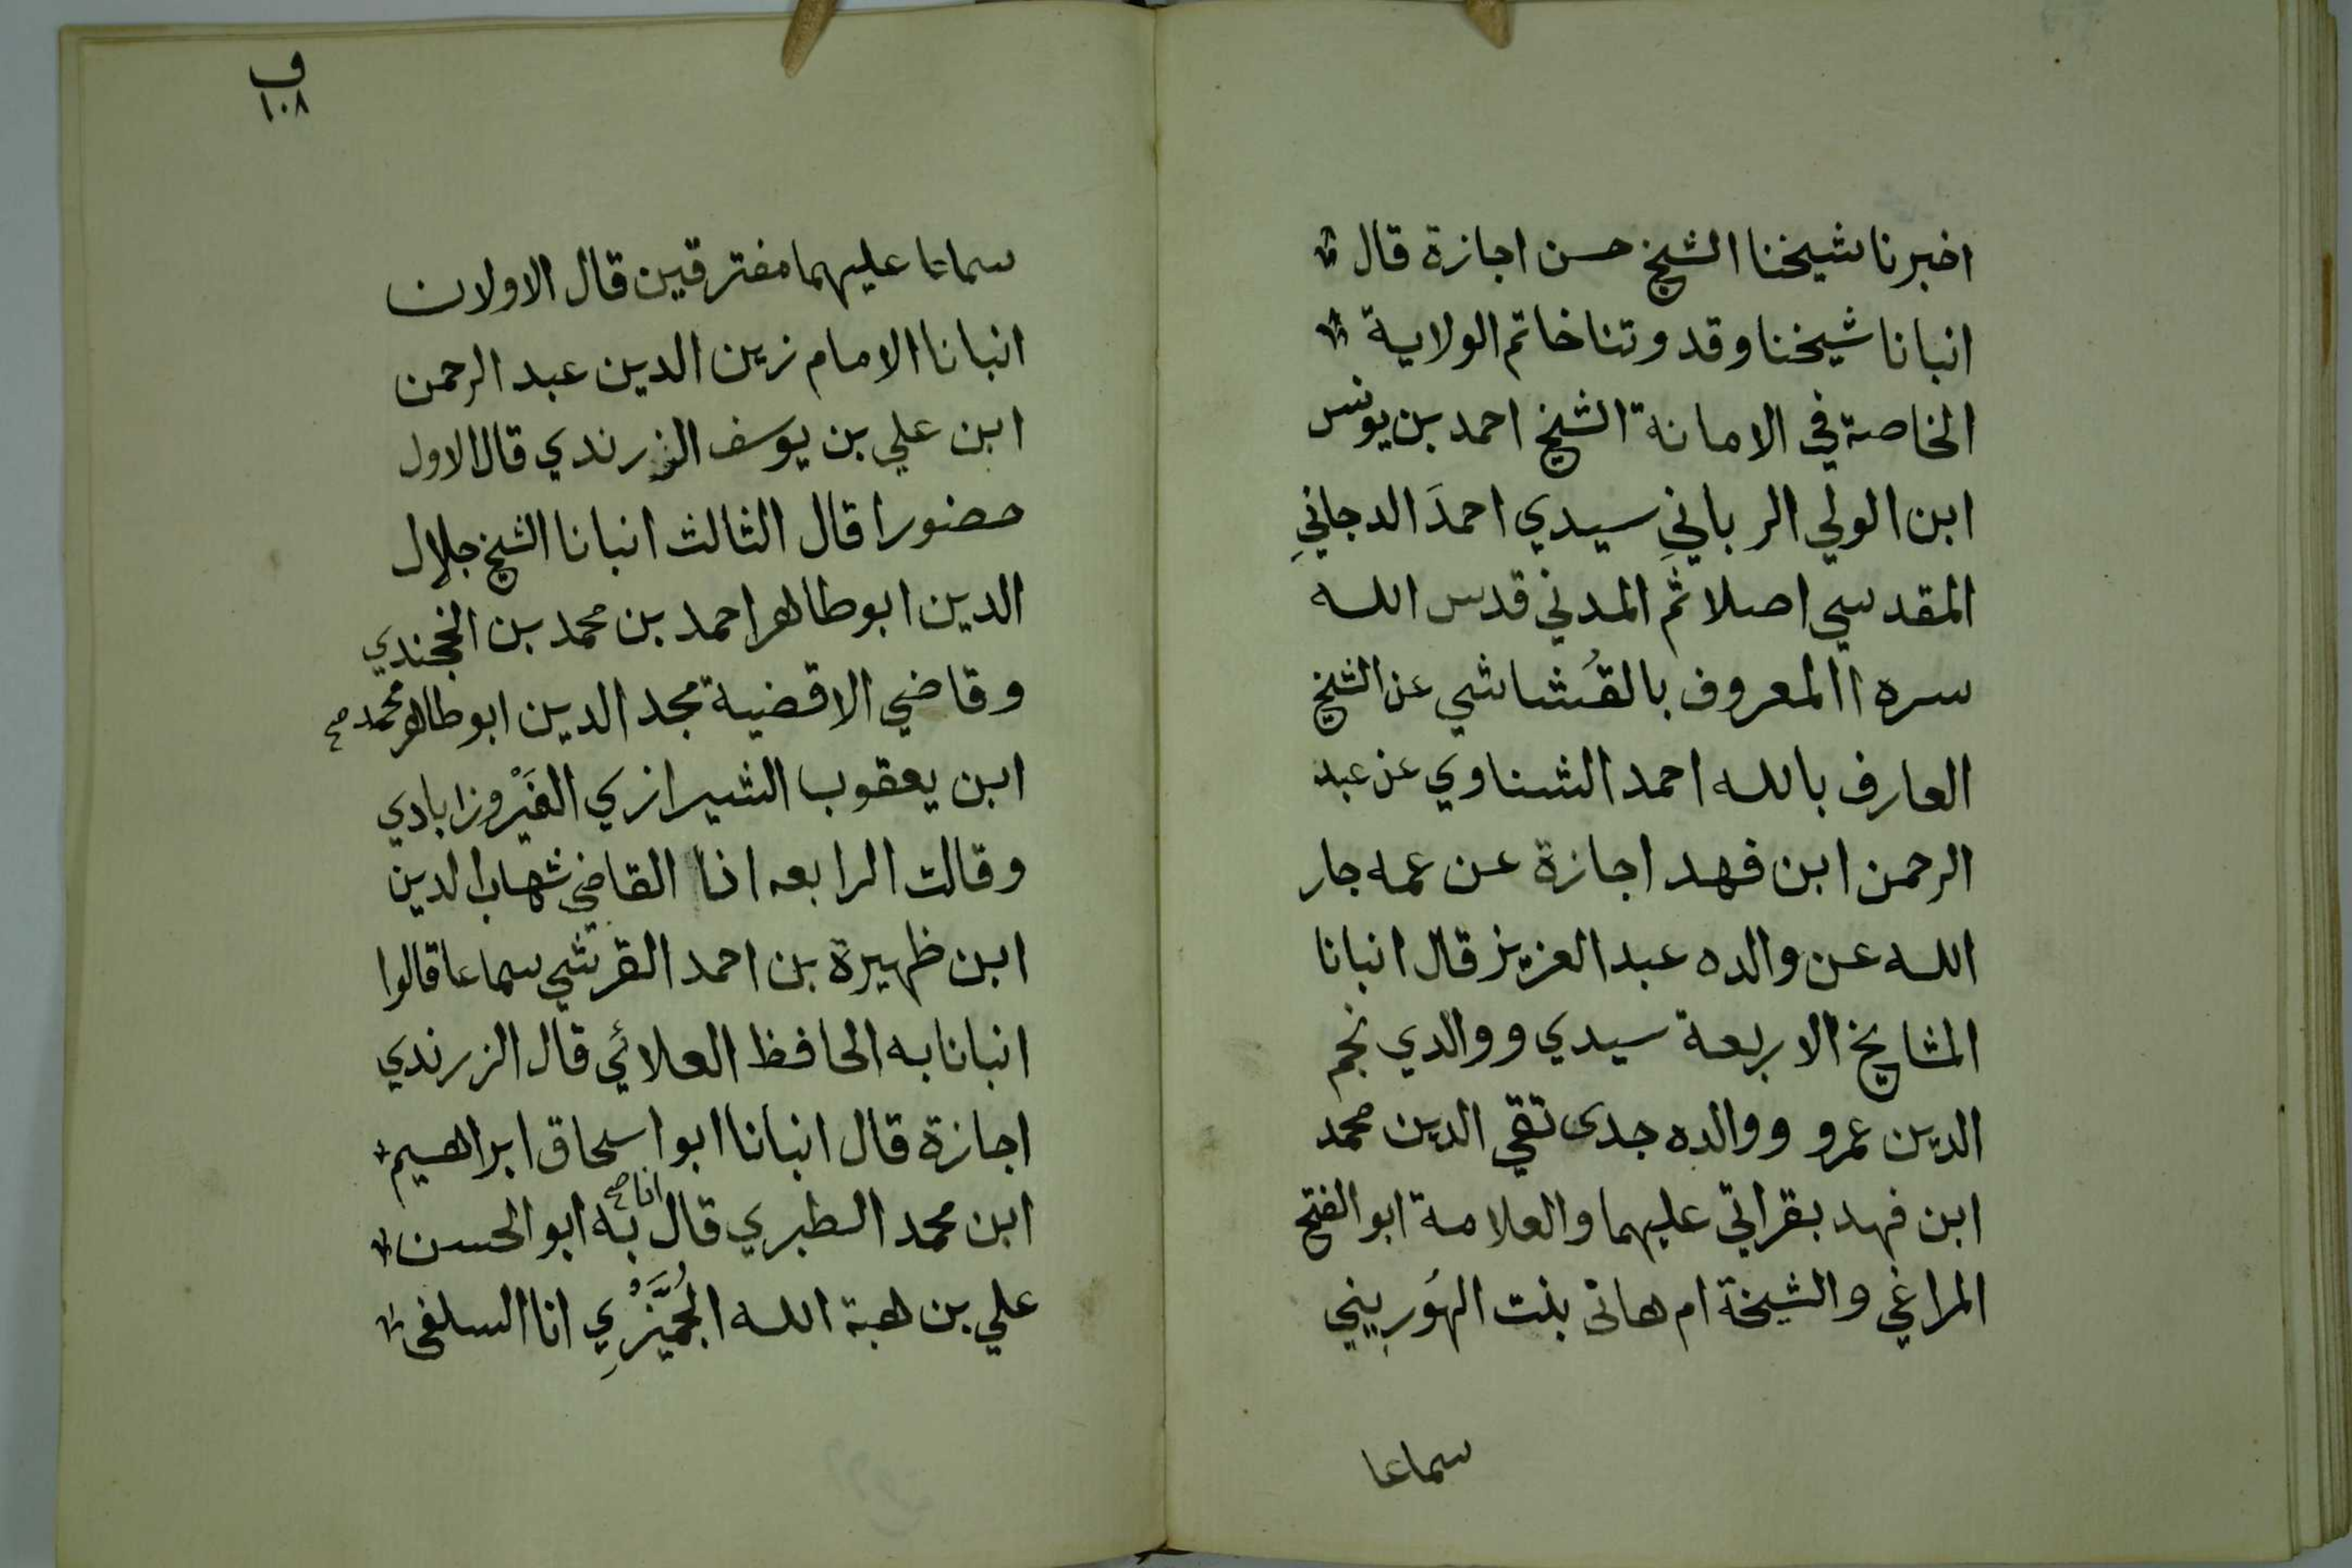 اخبرنا شيخنا الشيخ حسن اجازة قال
انبانا شيخنا وقدوتنا خاتم الولاية
الخاصة في الامانة الشيخ احمد بن يونس
ابن الولي الرباني سيدي احمدَ الدجانيِ
المقدسي اصلا ثم المدني قدس الله
سره االمعروف بالقُشاشي عن الشيخ
العارف بالله احمد الشناوي عن عبد
الرحمن ابن فهد اجازة عن عمه جار
الله عن والده عبد العزيز قال انبانا
المشايخ الاربعة سيدي ووالدي نجم
الدين عمرو ووالده جدى تقي الدين محمد
ابن فهد بقراتي عليهما والعلامة ابو الفتح
المراغي والشيخة ام هانى بنت الهُوريني
سماعا
ف
١٠٨
سماعا عليهما مفترقين قال الاولان
انبانا الامام زين الدين عبد الرحمن
ابن علي بن يوسف الزرندي قال الاول
حضورا قال الثالث انبانا الشيخ جلال
الدين ابو طاهر احمد بن محمد بن الخجندي
وقاضي الاقضية مجد الدين ابو طاهر محمد صح
ابن يعقوب الشيرازي الفَيْروزابادي
وقالت الرابعه انا القاضي شهاب الدين
ابن ظهيرة بن احمد القرشي سماعا قالوا
انبانا به الحافظ العلائي قال الزرندي
اجازة قال انبانا ابو اسحاق ابراهيم
ابن محمد الطبري قال انا صح به ابو الحسن
علي بن هبة الله الجُمَّيْزِي انا السلفى